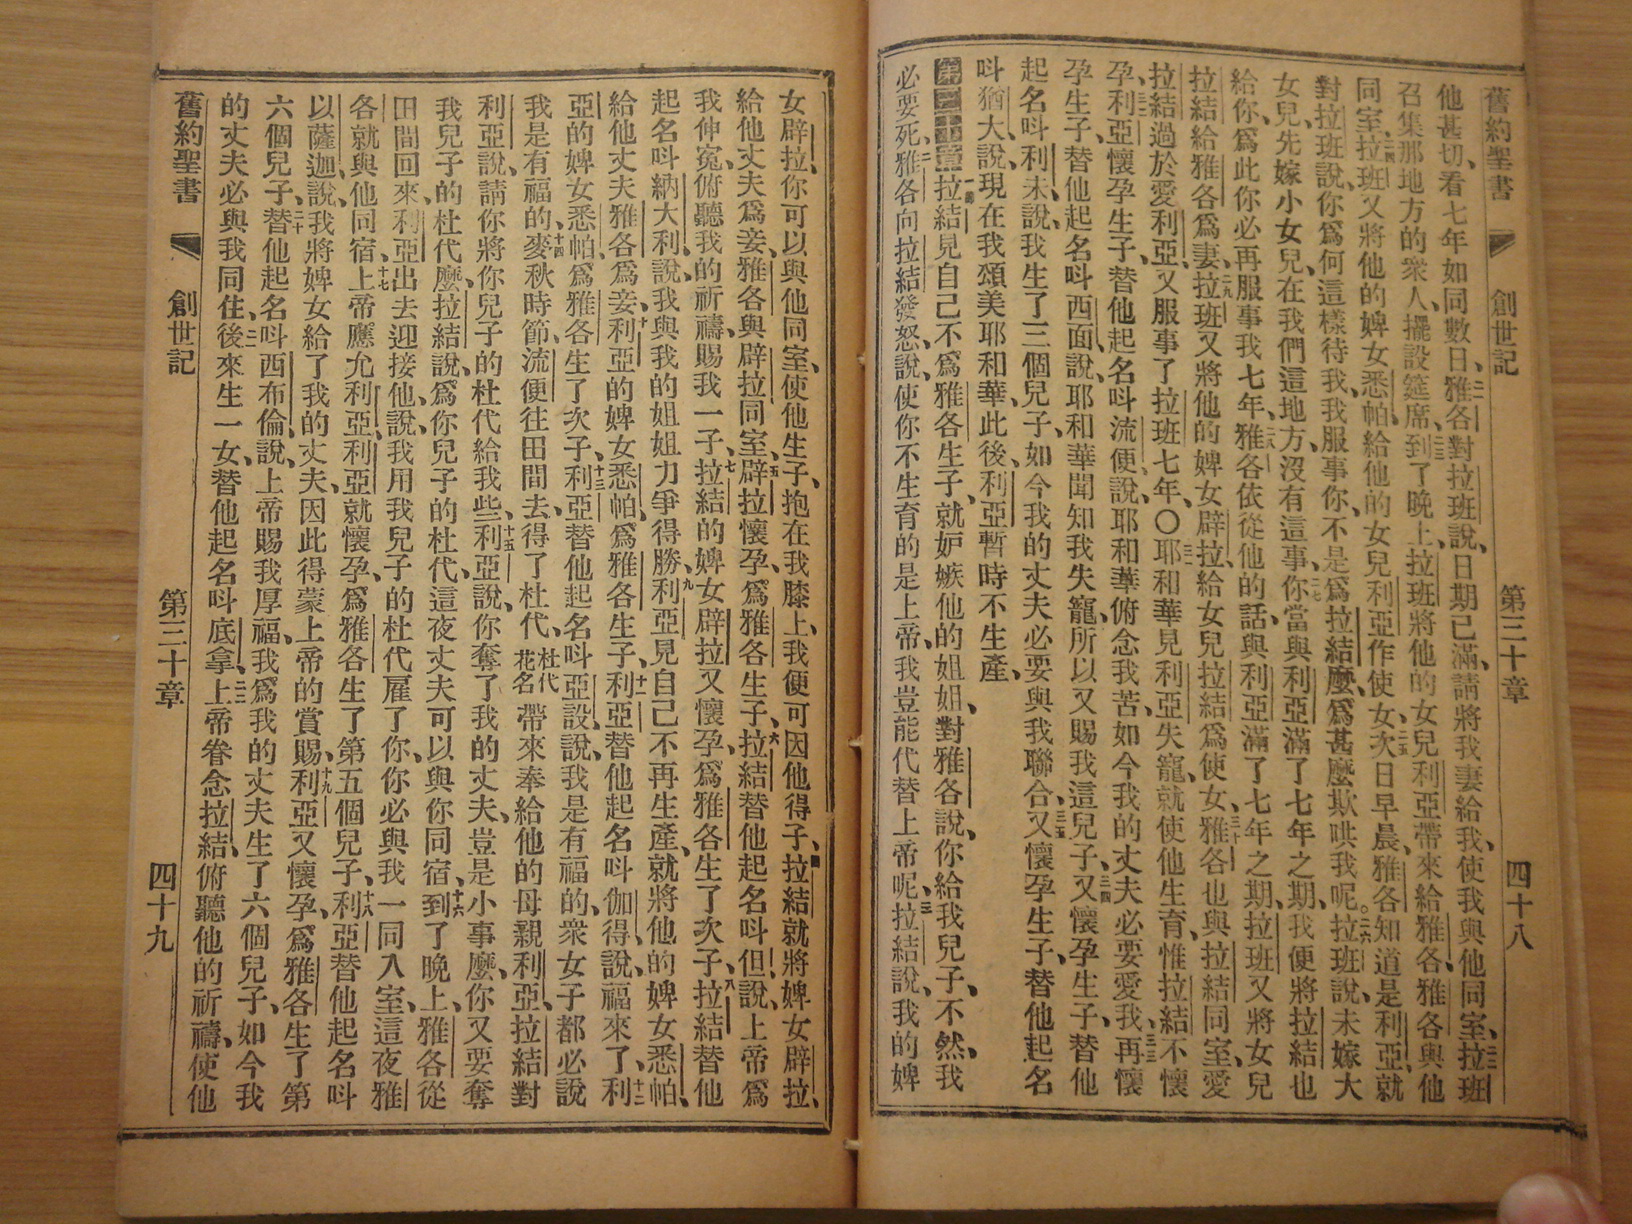 舊約聖書 創世記 第三十章 四十八
他甚切、看七年如同數日、二一雅各對拉班說、日期已滿、請將我妻給我、使我與他同室、二二拉班
召集那地方的衆人、擺設筵席、二三到了晚上、拉班將他的女兒利亞帶來給雅各、雅各與他
同室、二四拉班又將他的婢女悉帕、給他的女兒利亞作使女、二五次日早晨、雅各知道是利亞、就
對拉班說、你爲何這樣待我、我服事你、不是爲拉結麼、爲甚麼欺哄我呢。二六拉班說、未嫁大
女兒、先嫁小女兒、在我們這地方、沒有這事、二七你當與利亞滿了七年之期、我便將拉結也
給你、爲此你必再服事我七年、二八雅各依從他的話、與利亞滿了七年之期、拉班又將女兒
拉結給雅各爲妻、二九拉班又將他的婢女辟拉、給女兒拉結爲使女、三十雅各也與拉結同室、愛
拉結過於愛利亞、又服事了拉班七年、〇三一耶和華見利亞失寵、就使他生育、惟拉結不懷
孕、三二利亞懷孕生子、替他起名呌流便、說、耶和華俯念我苦、如今我的丈夫必要愛我、三三再懷
孕生子、替他起名呌西面、說、耶和華聞知我失寵、所以又賜我這兒子、三四又懷孕生子、替他
起名呌利未、說、我生了三個兒子、如今我的丈夫必要與我聯合、三五又懷孕生子、替他起名
呌猶大、說、現在我頌美耶和華、此後、利亞暫時不生產、
第三十章 一節拉結見自己不爲雅各生子、就妒嫉他的姐姐、對雅各說、你給我兒子、不然、我
必要死、二雅各向拉結發怒、說、使你不生育的是上帝、我豈能代替上帝呢、三拉結說、我的婢
女辟拉、你可以與他同室、使他生子、抱在我膝上、我便可因他得子、四拉結就將婢女辟拉、
給他丈夫爲妾、雅各與辟拉同室、五辟拉懷孕、爲雅各生子、六拉結替他起名呌但、說、上帝爲
我伸寃、俯聽我的祈禱、賜我一子、七拉結的婢女辟拉又懷孕、爲雅各生了次子、八拉結替他
起名呌納大利、說、我與我的姐姐力爭得勝、九利亞見自己不再生產、就將他的婢女悉帕、
給他丈夫雅各爲妾、十利亞的婢女悉帕、爲雅各生子、十一利亞替他起名呌伽得、說、福來了、十二利
亞的婢女悉帕、爲雅各生了次子、十三利亞替他起名呌亞設、說、我是有福的、衆女子都必說
我是有福的、十四麥秋時節、流便往田間去、得了杜代、杜代花名帶來奉給他的母親利亞、拉結對
利亞說、請你將你兒子的杜代給我些、十五利亞說、你奪了我的丈夫、豈是小事麼、你又要奪
我兒子的杜代麼、拉結說、爲你兒子的杜代、這夜丈夫可以與你同宿、十六到了晚上、雅各從
田間回來、利亞出去迎接他、說、我用我兒子的杜代雇了你、你必與我一同入室、這夜雅
各就與他同宿、十七上帝應允利亞、利亞就懷孕、爲雅各生了第五個兒子、十八利亞替他起名呌
以薩迦、說、我將婢女給了我的丈夫、因此得蒙上帝的賞賜、十九利亞又懷孕、爲雅各生了第
六個兒子、二十替他起名呌西布倫、說、上帝賜我厚福、我爲我的丈夫生了六個兒子、如今我
的丈夫必與我同住、二一後來生一女、替他起名呌底拿、二二上帝眷念拉結、俯聽他的祈禱、使他
舊約聖書 創世記 第三十章 四十九